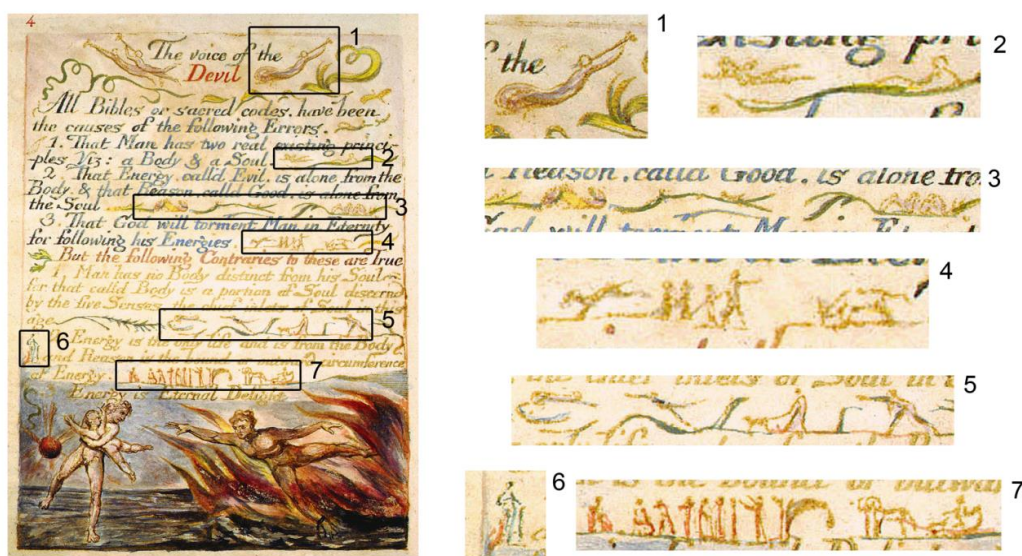 4
The voice of the
Devil
All Bibles or sacred codes. have been
the causes of the following Errors.
1. That Man has two real existing princi-
ples Viz: a Body & a Soul.
2. That Energy. calld Evil. is alone from the
Body. & that Reason. calld Good. is alone from
the Soul.
3. That God will torment Man in Eternity
for following his Energies.
But the following Contraries to these are True
1. Man has no Body distinct from his Soul
for that calld Body is a portion of Soul discernd
by the five Senses. the chief inlets of Soul in this
age
2. Energy is the only life and is from the Body
and Reason is the bound or outward circumference
of Energy.
3 Energy is Eternal Delight
1
2
3
4
5
6
7
f the
1
2
Reason. calld Good. is alone fro
3
God will torment Man in
4
5
6
7
is the bound or outwar